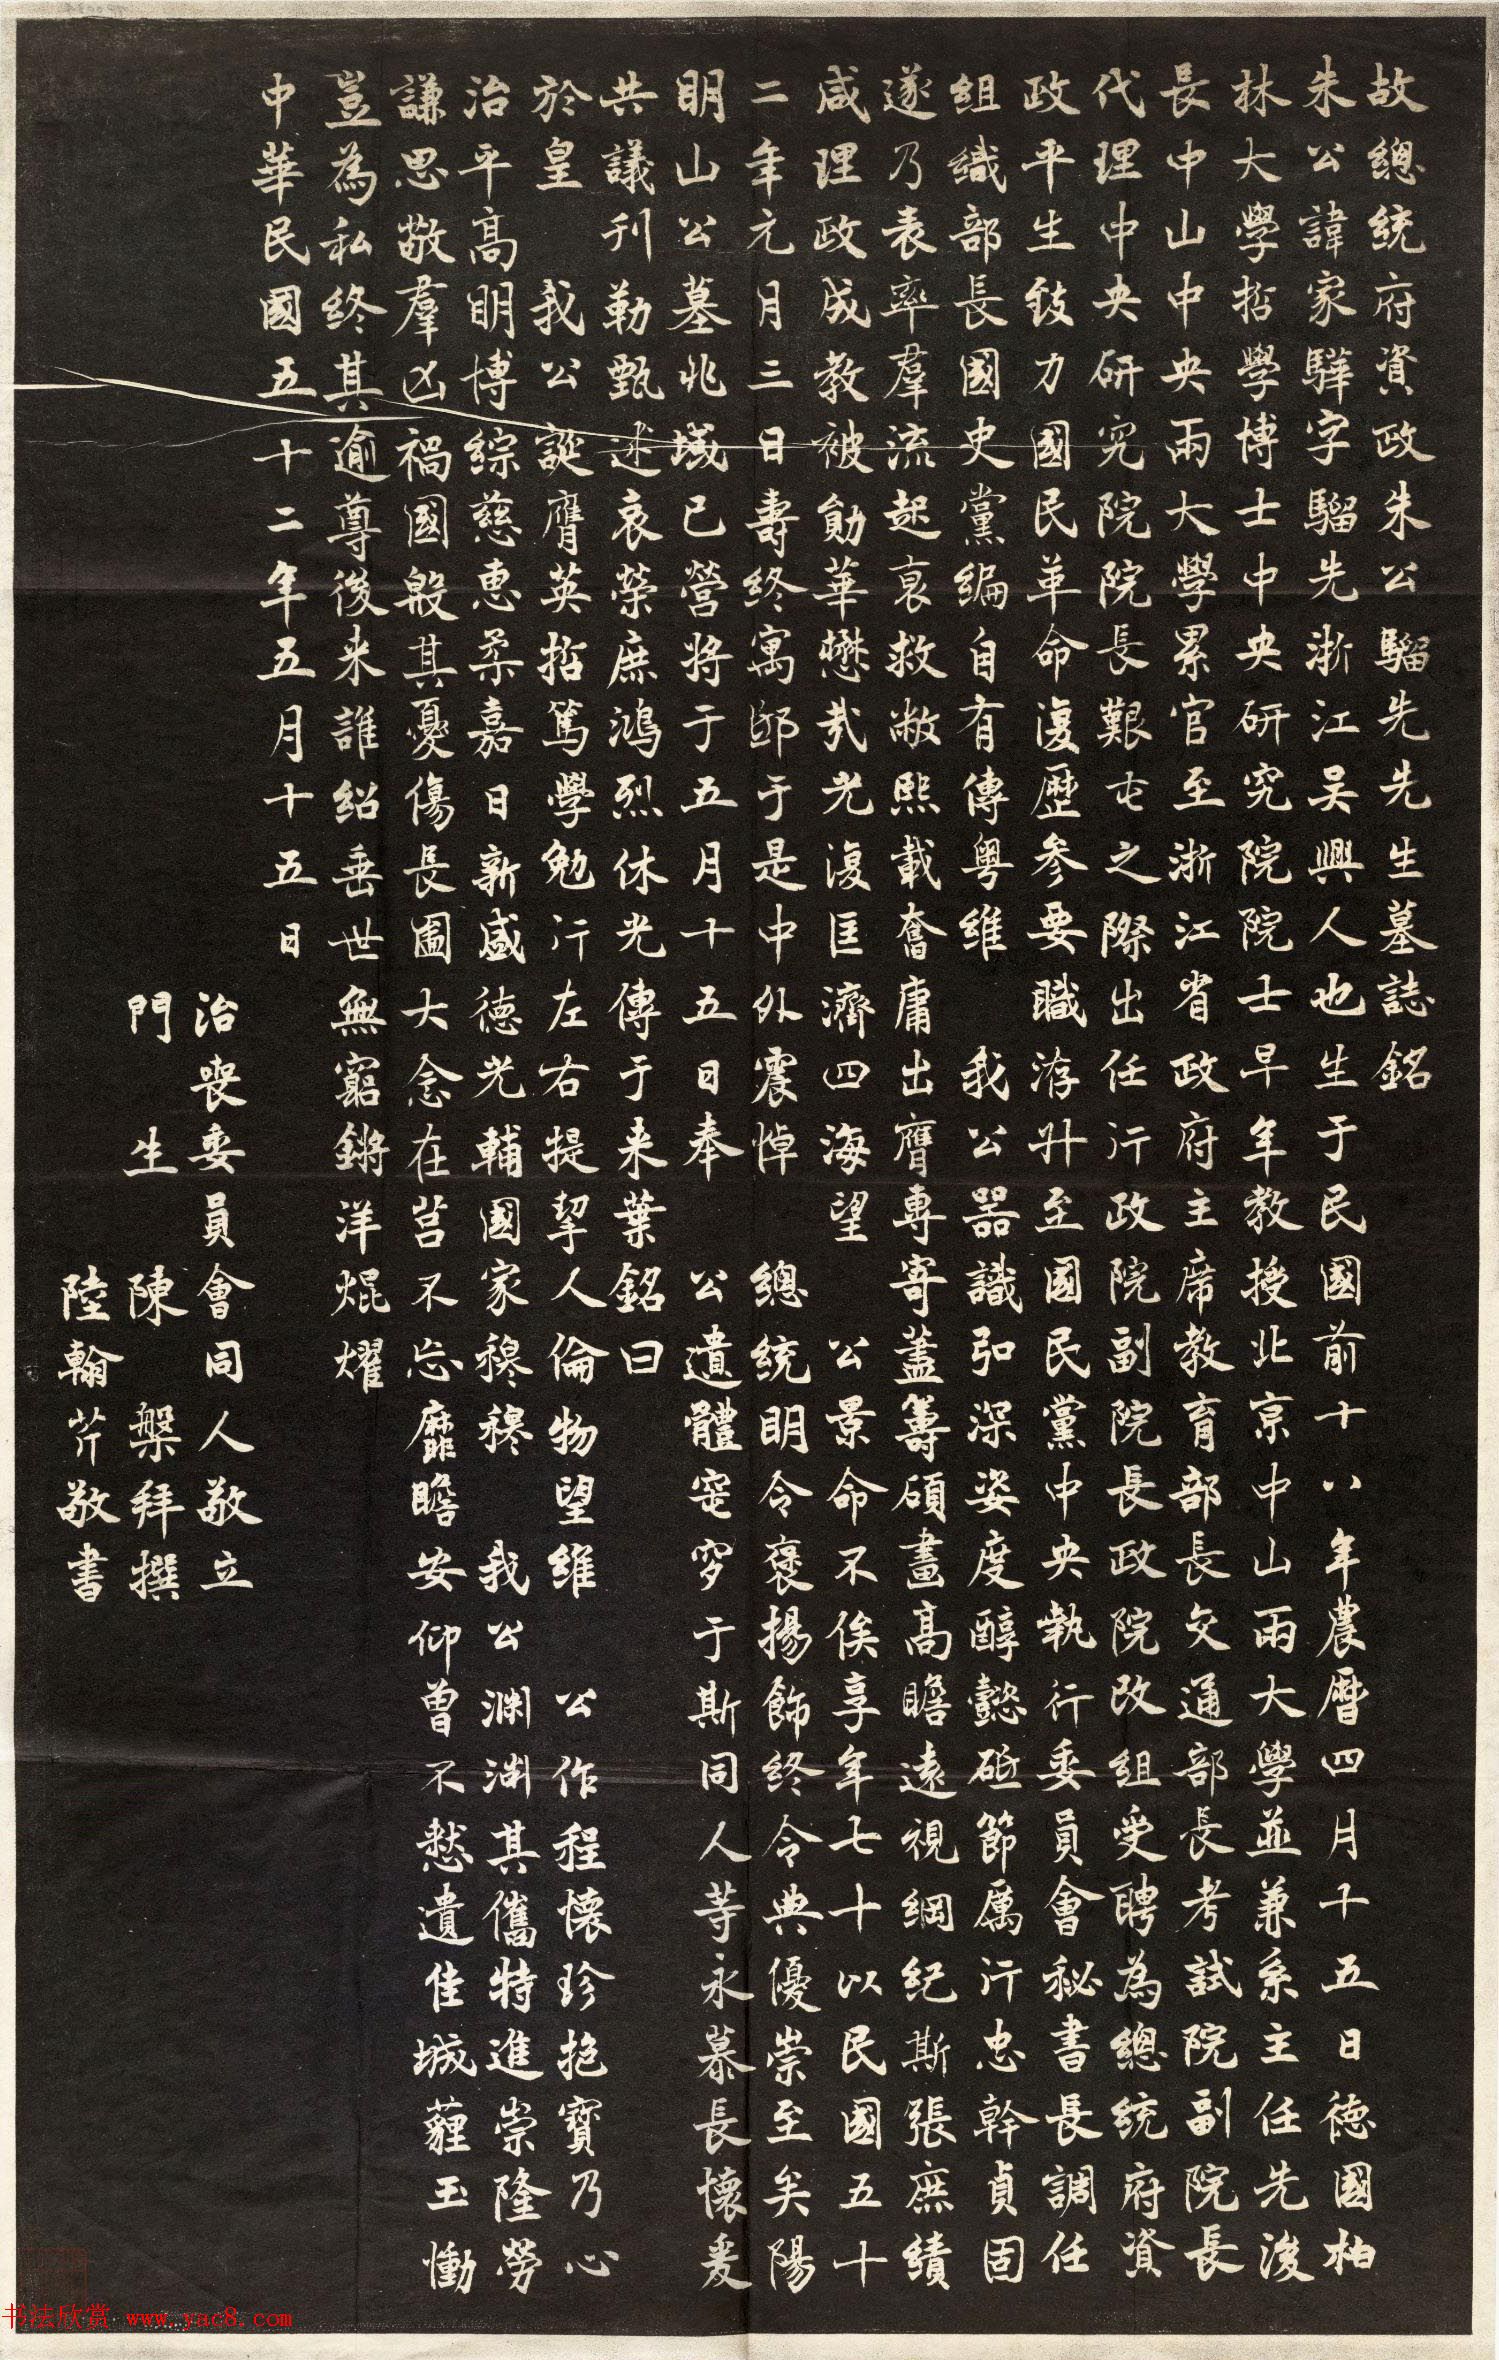 故總統府資政朱公騮先先生墓誌銘
朱公諱家驊字騮先浙江吳興人也生于民國前十八年農曆四月十五日德國柏
林大學哲學博士中央研究院院士早年教授北京中山兩大學並兼系主任先後
長中山中央兩大學累官至浙江省政府主席教育部長交通部長考試院副院長
代理中央研究院院長艱屯之際出任行政院副院長政院改組受聘為總統府資
政平生致力國民革命復歷參要職洊升至國民黨中央執行委員會秘書長調任
組織部長國史黨編自有傳粵維 我公器識弘深姿度醇懿砥節厲行忠幹貞固
遂乃表率羣流起衰救敝熙載奮庸出膺專寄藎籌碩畫高瞻遠視綱紀斯張庶績
咸理政成教被勛華懋哉光復匡濟四海望 公景命不俟享年七十以民國五十
二年元月三日壽終寓邸于是中外震悼 總統明令褒揚飾終令典優崇至矣陽
明山公墓兆域已營將于五月十五日奉 公遺體窆穸于斯同人等永慕長懷爰
共議刊勒甄述哀榮庶鴻烈休光傳于来葉銘曰
於皇 我公誕膺英哲篤學勉行左右提挈人倫物望維 公作程懷珍抱寶乃心
治平高明博綜慈惠柔嘉日新盛德光輔國家穆穆 我公淵淵其儁特進崇隆勞
謙思敬羣凶禍國殷其憂傷長圖大念在莒不忘靡瞻安仰曾不憖遺佳城薶玉慟
豈為私終其逾尊後来誰紹垂世無窮鏘洋焜燿
中華民國五十二年五月十五日
治喪委員會同人敬立
門生 陳槃拜撰
陸翰芹敬書
书法欣赏 www.yac8.com